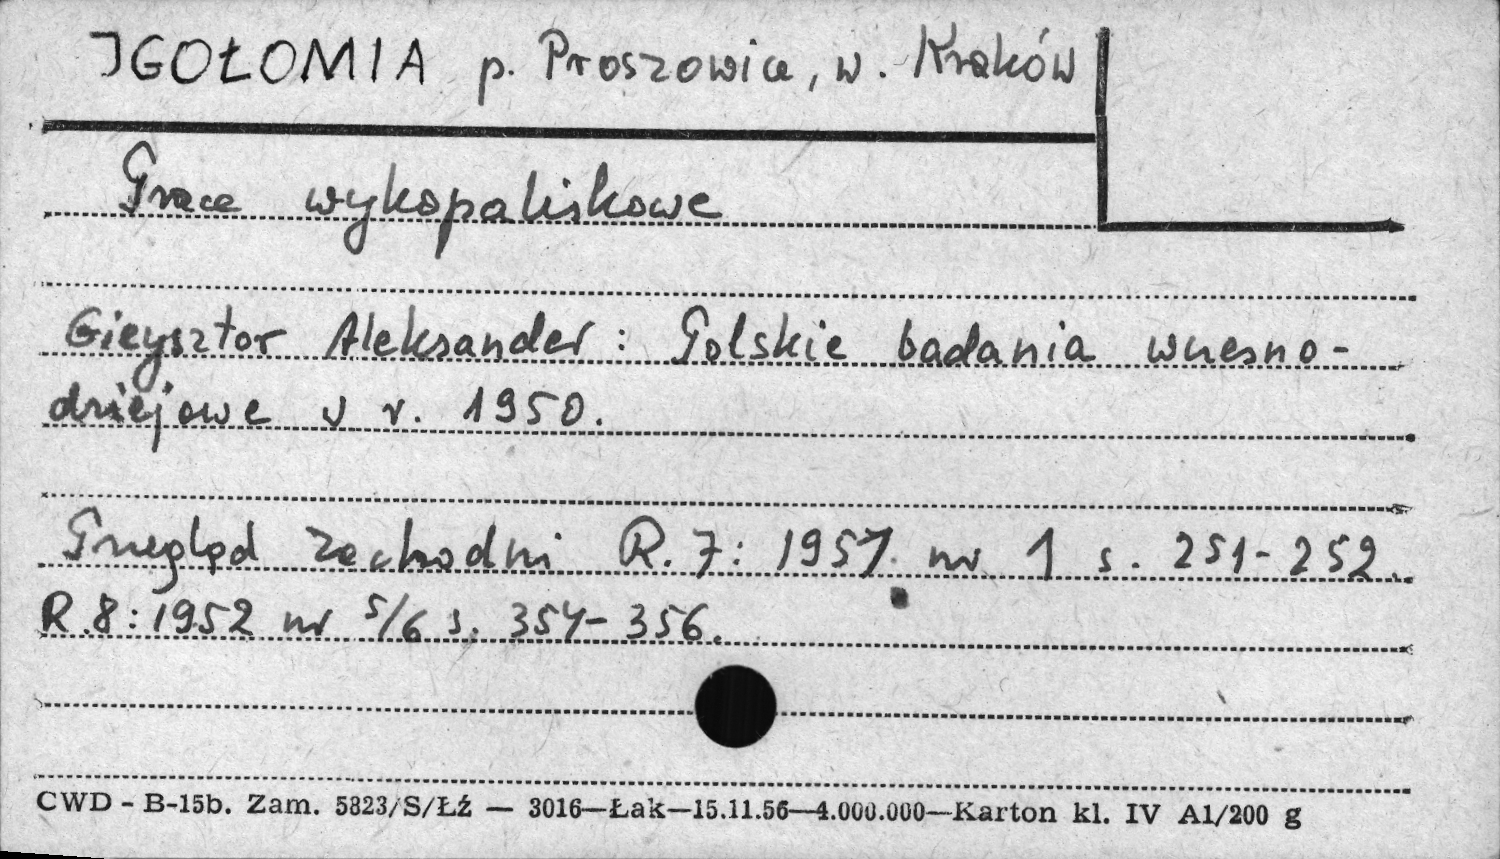 IGOŁOMIA p. Proszowice, w. Kraków
Prace wykopaliskowe
Gieysztor Aleksander: Polskie badania wczesno-
dziejowe w r. 1950.
Przegląd Zachodni R. 7: 1951 nr 1 s. 251-252.
R. 8: 1952 nr 5/6 s. 354-356.
CWD - B-15b. Zam. 5823/S/ŁŹ — 3016—Łak—15.11.56—4.000.000—Karton kl. IV A1/200 g